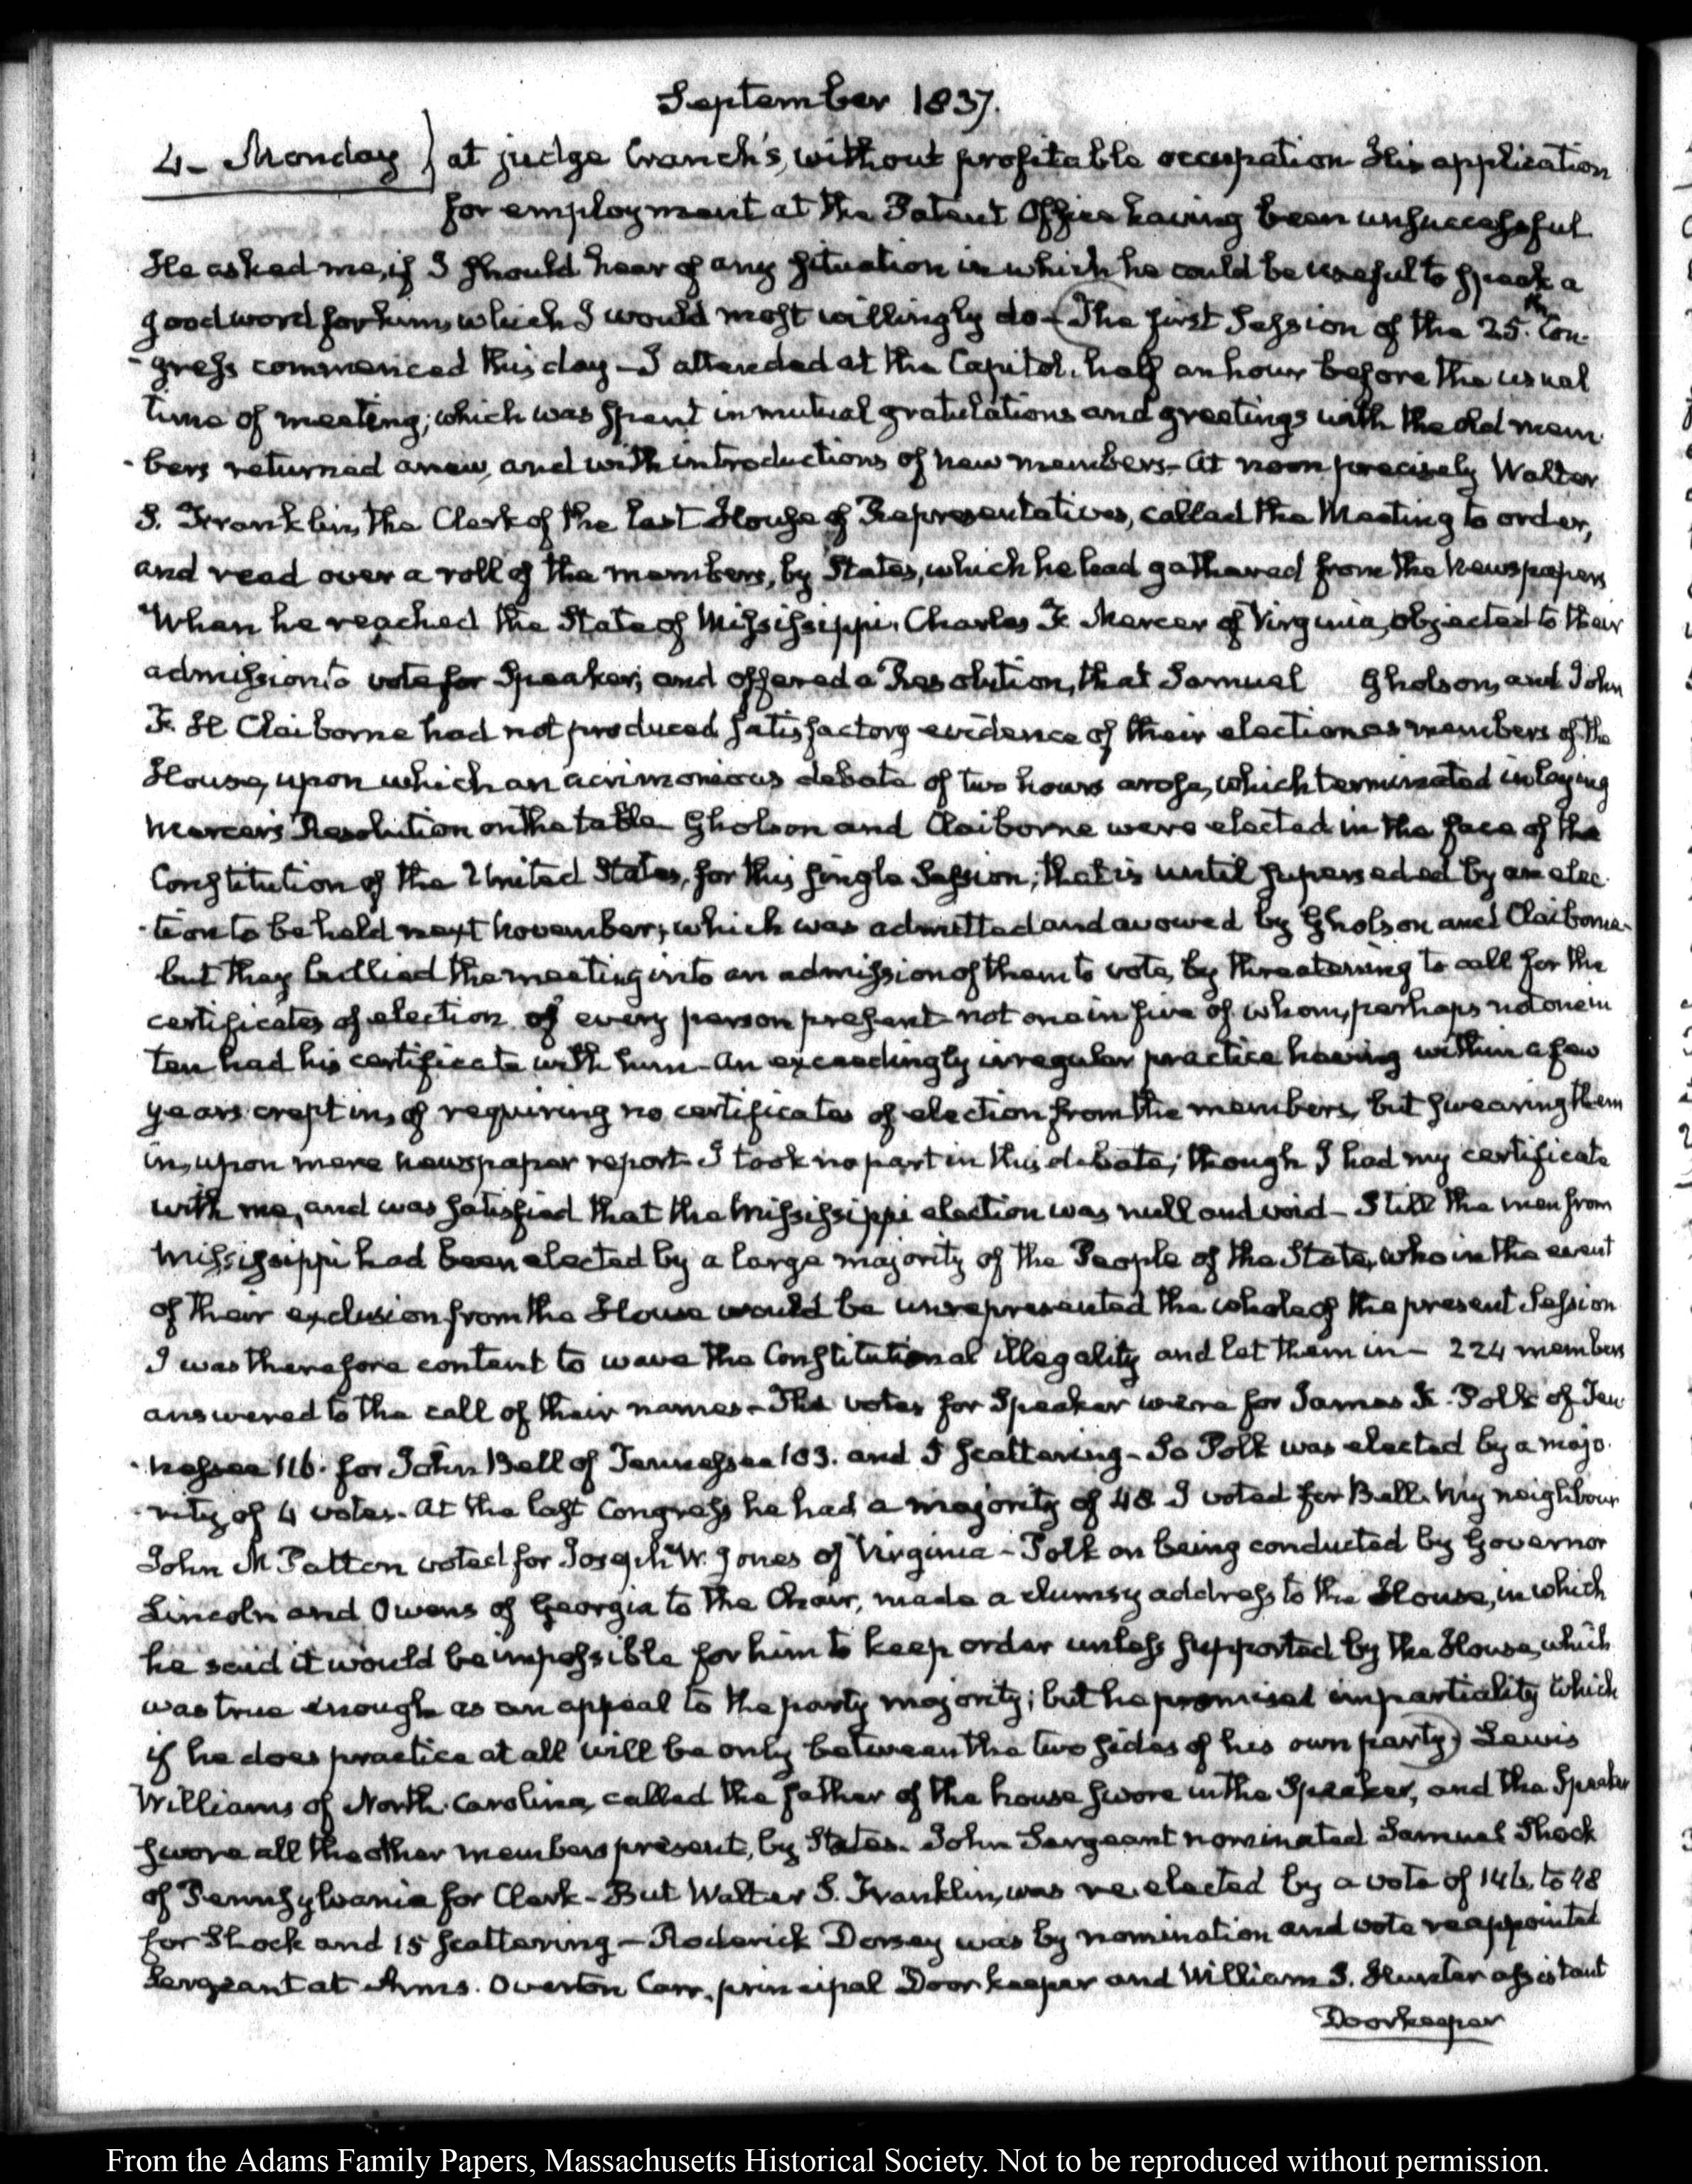 September 1837.
4 - Monday } at judge Cranch's, without profitable occupation His application
for employment at the Patent Office having been unsuccessful
He asked me, if I should hear of any situation in which he could be useful to speak a
good word for him, which I would most willingly do - The first Session of the 25.th Con-
-gress commenced this day - I attended at the Capitol, half an hour before the usual
time of meeting; which was spent in mutual gratulations and greetings with the old mem-
-bers returned anew, and with introductions of new members - At noon precisely Walter
S. Franklin, the Clerk of the last House of Representatives, called the Meeting to order,
and read over a roll of the members, by States, which he had gathered from the Newspapers
When he reached the State of Mississippi, Charles F. Mercer of Virginia, objected to their
admission to vote for Speaker; and offered a Resolution, that Samuel Gholson, and John
F. H Claiborne had not produced satisfactory evidence of their election as members of the
House, upon which an acrimonious debate of two hours arose, which terminated in laying
Mercer's Resolution on the table Gholson and Claiborne were elected in the face of the
Constitution of the United States, for this single Session; that is until superseded by an elec-
-tion to be held next November; which was admitted and avowed by Gholson and Claiborne -
but they bullied the meeting into an admission of them to vote, by threatening to call for the
certificates of election of every person present not one in five of whom, perhaps not one in
ten had his certificate with him - An exceedingly irregular practice having within a few
years crept in, of requiring no certificates of election from the members, but swearing them
in, upon mere newspaper report I took no part in this debate; though I had my certificate
with me, and was satisfied that the Mississippi election was null and void - Still the men from
Mississippi had been elected by a large majority of the People of the State, who in the event
of their exclusion from the House would be unrepresented the whole of the present Session
I was therefore content to wave the Constitutional illegality and let them in - 224 members
answered to the call of their names - The votes for Speaker were for James K. Polk of Ten-
-nessee 116. for John Bell of Tennessee 103. and 5 scattering - So Polk was elected by a majo-
-rity of 4 votes. At the last Congress he had a majority of 48 I voted for Bell. My neighbour
John M Patton voted for Joseph W. Jones of Virginia - Polk on being conducted by Governor
Lincoln and Owens of Georgia to the Chair, made a clumsy address to the House, in which
he said it would be impossible for him to keep order unless supported by the House, which
was true enough as an appeal to the party majority; but he promised impartiality which
if he does practice at all will be only between the two sides of his own party) Lewis
Williams of North-Carolina, called the father of the house swore in the Speaker, and the Speaker
swore all the other members present, by States. John Sergeant nominated Samuel Shock
of Pennsylvania for Clerk - But Walter S. Franklin, was re-elected by a vote of 146. to 48
for Shock and 15 scattering - Roderick Dorsey was by nomination and vote reappointed
Sergeant at Arms. Overton Carr, principal Doorkeeper and William S. Hunter assistant
Doorkeeper
From the Adams Family Papers, Massachusetts Historical Society. Not to be reproduced without permission.